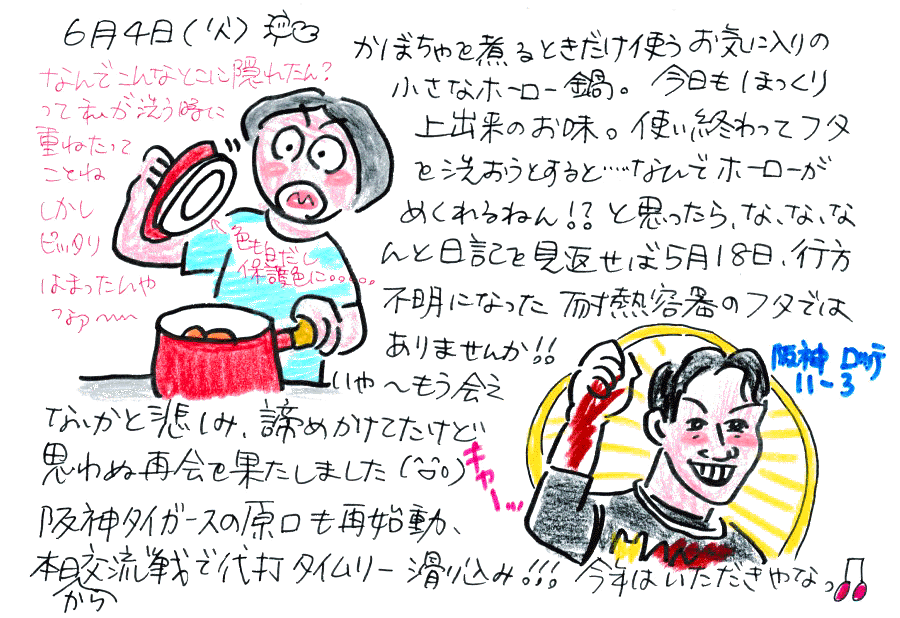 6月4日(火)
なんでこんなとこに隠れたん?
って私が洗う時に
重ねたって
ことね
しかし
ピッタリ
はまったんや
なァ〜〜
色も白だし
保護色に。。。。。
かぼちゃを煮るときだけ使うお気に入りの
小さなホーロー鍋。今日もほっくり
上出来のお味。使い終わってフタ
を洗おうとすると……なんでホーローが
めくれるねん!?と思ったら、な、な、な
んと日記を見返せば5月18日、行方
不明になった耐熱容器のフタでは
ありませんか!!
いや〜もう会え
ないかと悲しみ、諦めかけてたけど
思わぬ再会を果たしました(^o^)
阪神タイガースの原口も再始動、
本日交流戦で代打タイムリー滑り込み!!!今年はいただきやなっ
から
キャーッ
阪神 ロッテ
11-3